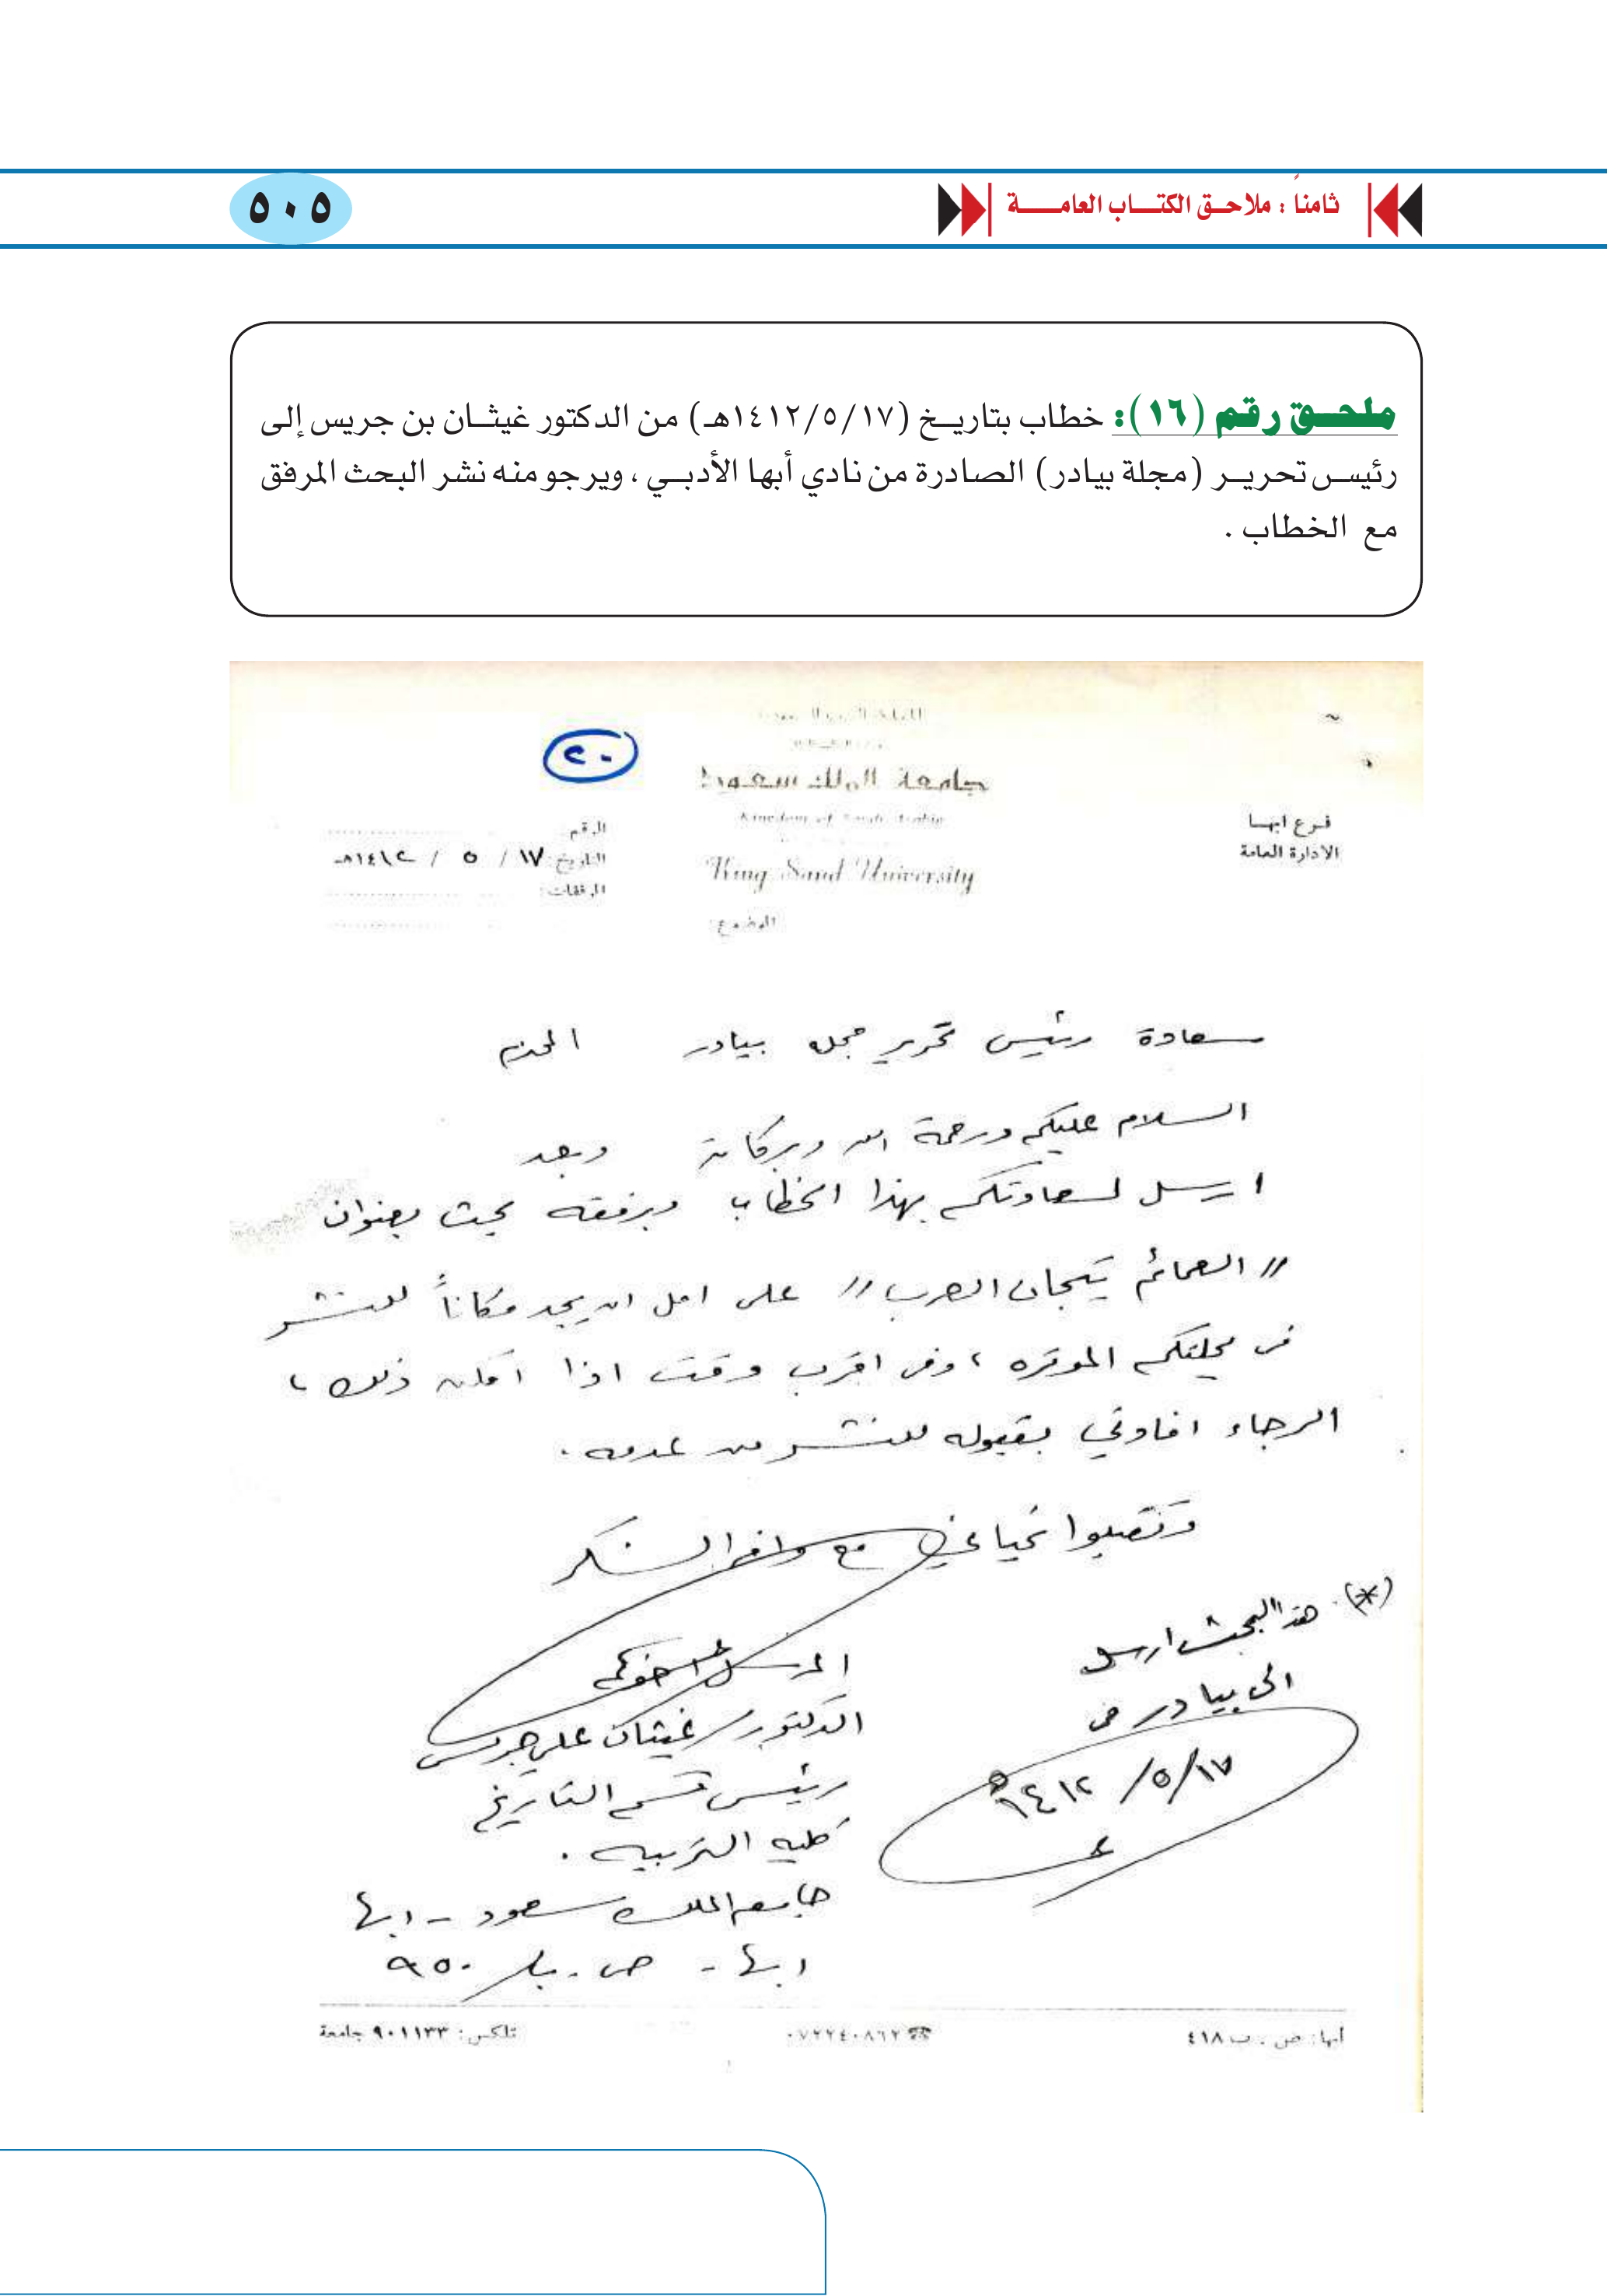 ثامناً : ملاحـق الكتـــاب العامـــــة
٥٠٥
ملحـــق رقم (١٦): خطاب بتاريــخ (١٤١٢/٥/١٧هـ) من الدكتور غيثــان بن جريس إلى
رئيس تحريــر (مجلة بيادر) الصادرة من نادي أبها الأدبــي ، ويرجو منه نشر البحث المرفق
مع الخطاب .
٢٠
جامعة الملك سعود
Kingdom of Saudi Arabia
King Saud University
فرع ابها
الادارة العامة
الرقم
التاريخ: ١٧ / ٥ / ١٤١٢هـ
المرفقات:
الموضوع:
سعادة رئيس تحرير مجله بيادر المحترم
السلام عليكم ورحمة الله وبركاته وبعد
ارسل لسعادتكم بهذا الخطاب وبرفقته بحث بعنوان
// العمائم تيجان العرب // على امل ان يجد مكاناً للنشر
في مجلتكم الموقره ، وفي اقرب وقت اذا امكن ذلك ،
الرجاء افادتي بقبوله للنشر من عدمه .
وتقبلوا تحياتي مع وافر الشكر
(*) هذا البحث ارسل
الى بيادر في
١٧/ ٥/ ١٤١٢هـ
المرسل اخوكم
الدكتور غيثان علي جريس
رئيس قسم التاريخ
كليه التربيه .
جامعه الملك سعود - ابها
ابها - ص . ب ٩٥٠
أبها: ص . ب ٤١٨
☎ ٠٧٢٢٤٠٨٦٢
تلكس: ٩٠١١٣٣ جامعة